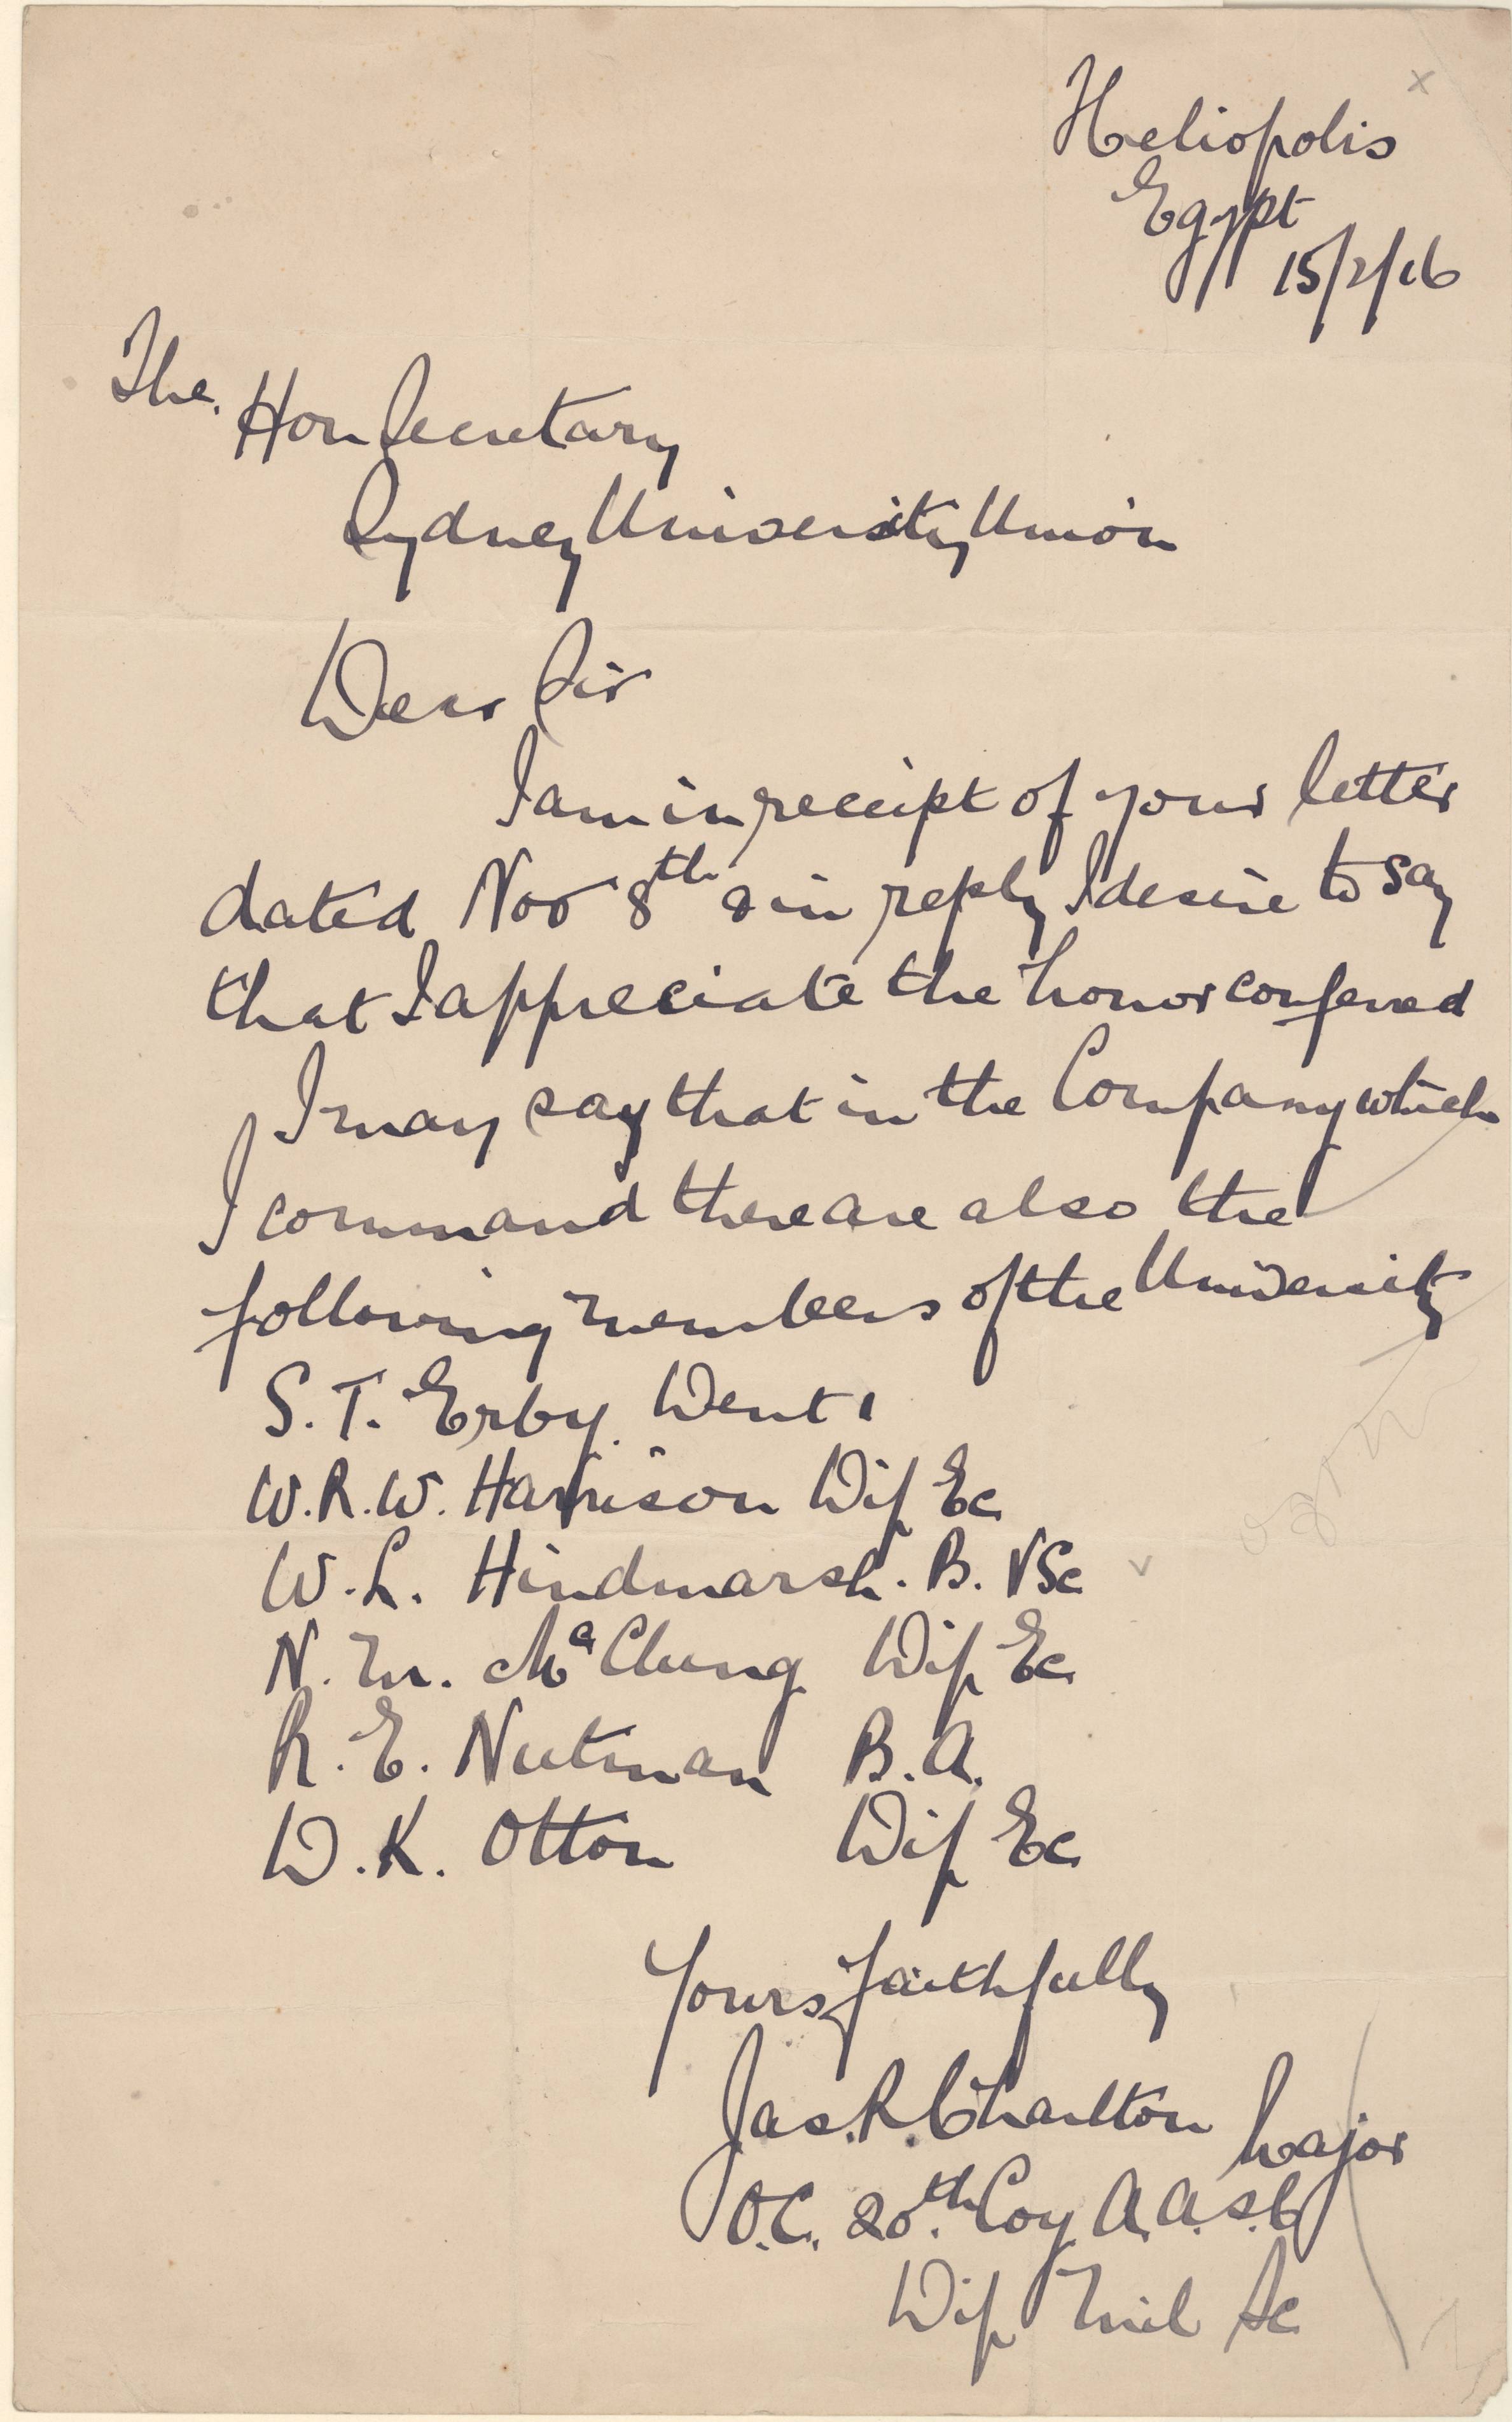 Heliopolis
Egypt
15/2/16
The Hon Secretary
Sydney University Union
Dear Sir
I am in receipt of your letter
dated Nov 8th & in reply I desire to say
that I appreciate the honor conferred
I may say that in the Company which
I command there are also the
following members of the University
S. T. Erby. Dent 1
W. R. W. Harrison Dip Ec
W. L. Hindmarsh. B. VSc
N. M. McClung Dip Ec
R. E. Nutman B. A.
D. K. Otton Dip Ec
Yours faithfully
Jas. R. Charlton Major
O.C. 20th Coy A.A.S.C
Dip Mil Sc